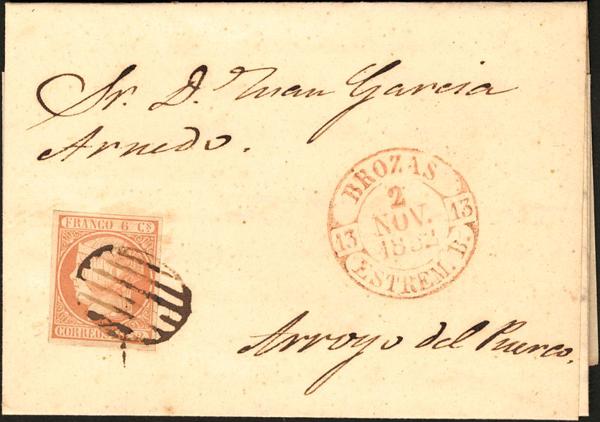 Sr. D. Juan Garcia
Arnedo.
BROZAS
2
NOV.
1852
13
13
ESTREM. B.
FRANCO 6 Cs
CORREOS
Arroyo del Puerco.